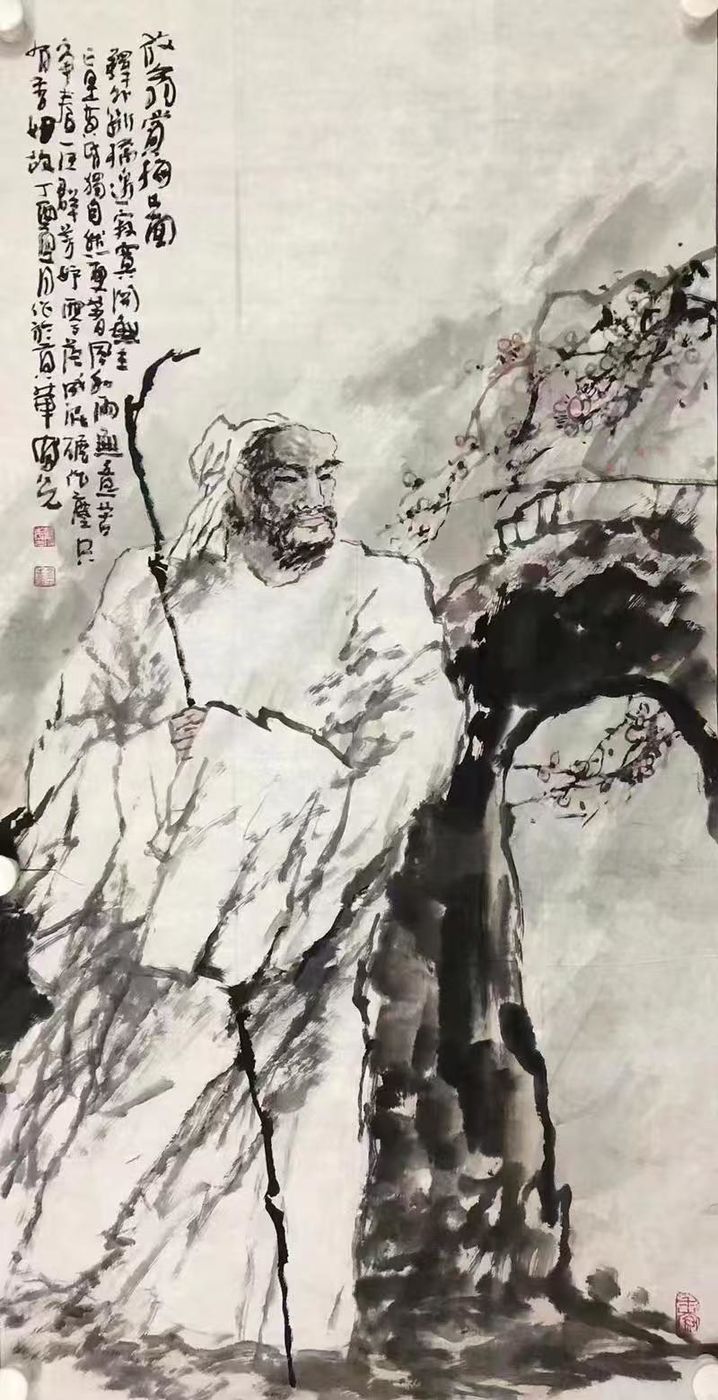 放翁賞梅圖
驛外斷橋邊寂寞開無主
已是黃昏獨自愁更著風和雨無意苦
爭春一任群芳妒零落成泥碾作塵只
有香如故丁酉夏月作於京華